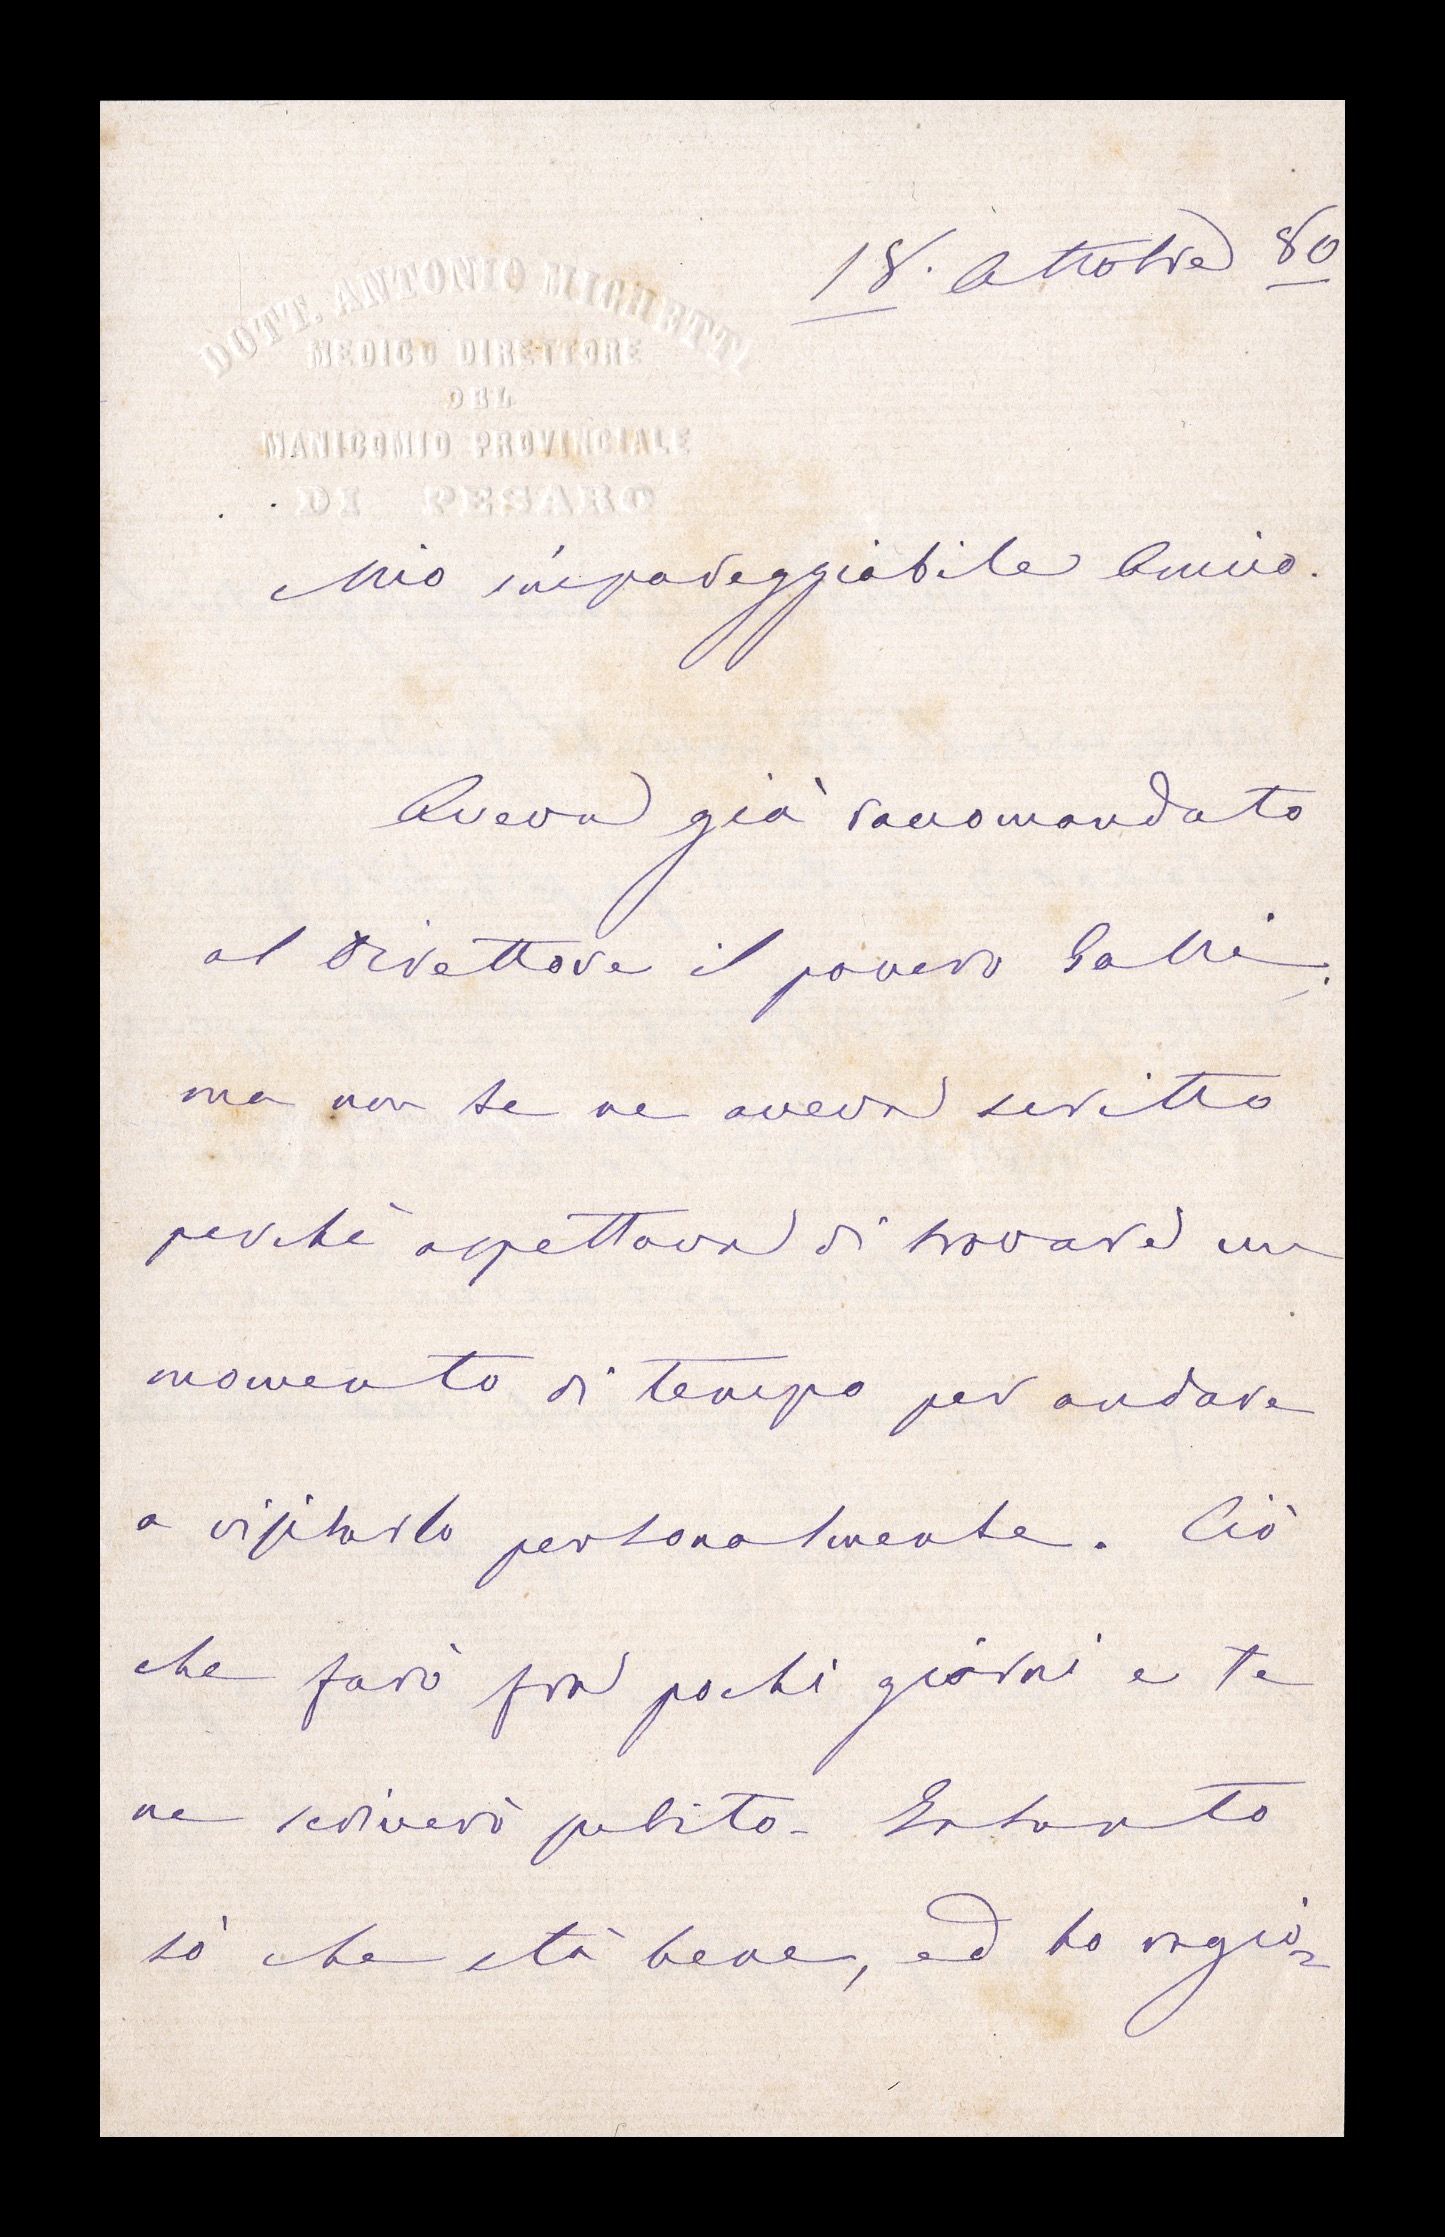 18. Ottobre 80
DOTT. ANTONIO MICHETTI
MEDICO DIRETTORE
DEL
MANICOMIO PROVINCIALE
DI PESARO
Mio impareggiabile Amico.
Aveva già raccomandato
al Direttore il povero Galli;
ma non te ne aveva scritto
perchè aspettava di trovare un
momento di tempo per andare
a visitarlo personalmente. Ciò
che farò fra pochi giorni e te
ne scriverò subito - Intanto
sò che stà bene, ed ho ragio-